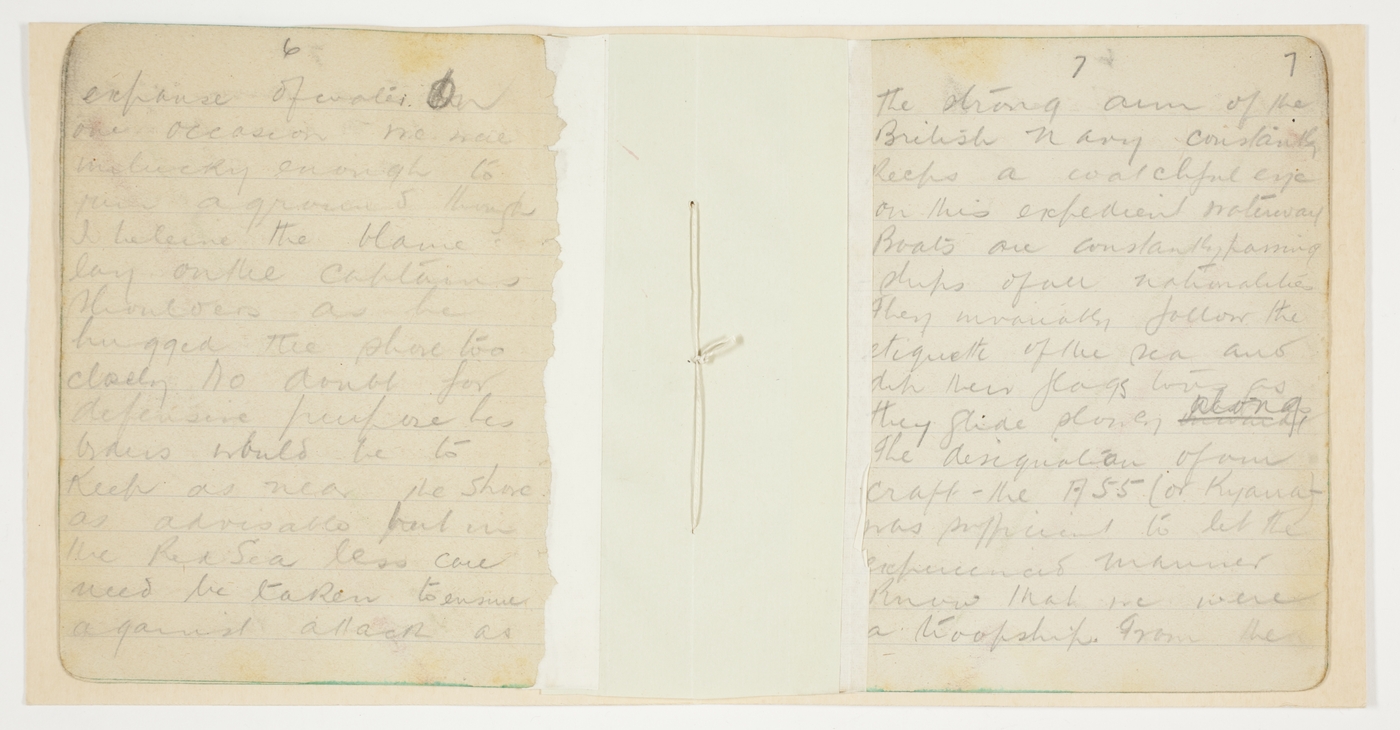 6
expanse of water. On
one occasion we were
unlucky enough to
run aground though
I beleive the blame
lay on the captains
shoulders as he
hugged the shore too
closely No doubt for
defensive purpose his
orders would be to
Keep as near the Shore
as advisable but in
the Red Sea less care
need be taken to ensure
against attack as
7 7
the strong arm of the
British Navy constantly
keeps a watchful eye
on this expedient waterway
Boats are constantly passing
ships of all nationalities
They invariably follow the
etiquette of the sea and
dip their flags low as
they glide slowly along
The designation of our
craft - the A55 (or Kyarra)
was sufficient to let the
experienced mariner
Know that we were
a troopship. From the